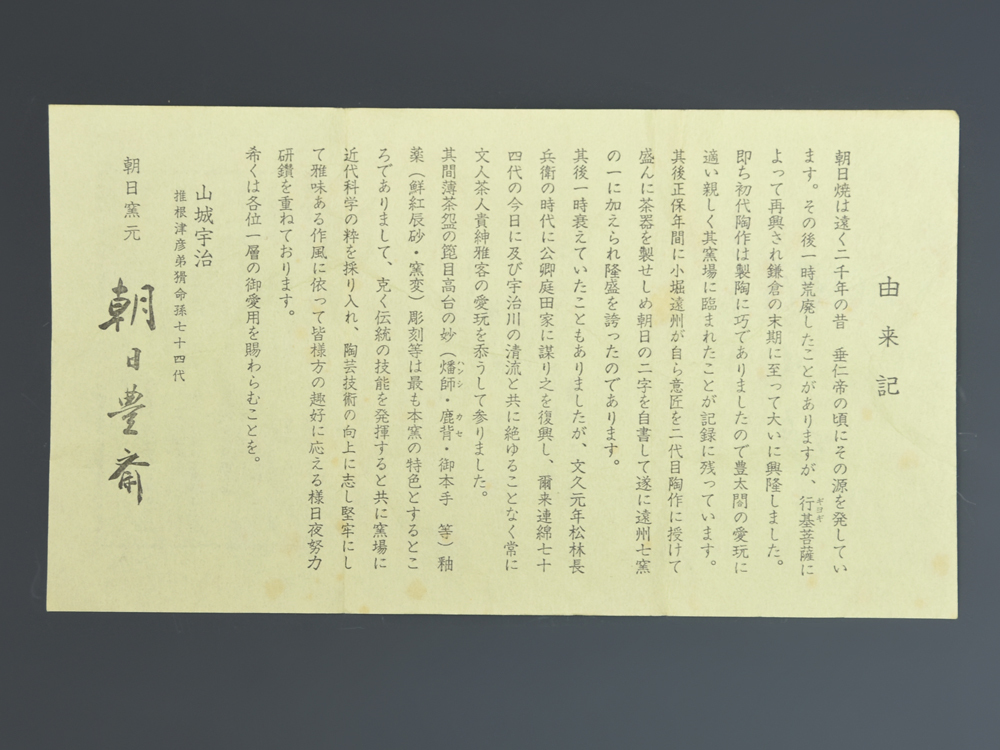 由来記
朝日焼は遠く二千年の昔　垂仁帝の頃にその源を発してい
ます。その後一時荒廃したことがありますが、行基菩薩に
ギヨギ
よって再興され鎌倉の末期に至って大いに興隆しました。
即ち初代陶作は製陶に巧でありましたので豊太閤の愛玩に
適い親しく其窯場に臨まれたことが記録に残っています。
其後正保年間に小堀遠州が自ら意匠を二代目陶作に授けて
盛んに茶器を製せしめ朝日の二字を自書して遂に遠州七窯
の一に加えられ隆盛を誇ったのであります。
其後一時衰えていたこともありましたが、文久元年松林長
兵衛の時代に公卿庭田家に謀り之を復興し、爾来連綿七十
四代の今日に及び宇治川の清流と共に絶ゆることなく常に
文人茶人貴紳雅客の愛玩を忝うして参りました。
其間薄茶盌の箆目高台の妙（燔師・鹿背・御本手　等）釉
ハンシ
カセ
薬（鮮紅辰砂・窯変）彫刻等は最も本窯の特色とするとこ
ろでありまして、克く伝統の技能を発揮すると共に窯場に
近代科学の粋を採り入れ、陶芸技術の向上に志し堅牢にし
て雅味ある作風に依って皆様方の趣好に応える様日夜努力
研鑽を重ねております。
希くは各位一層の御愛用を賜わらむことを。
山城宇治
推根津彦弟猾命孫七十四代
朝日窯元
朝日豊斎